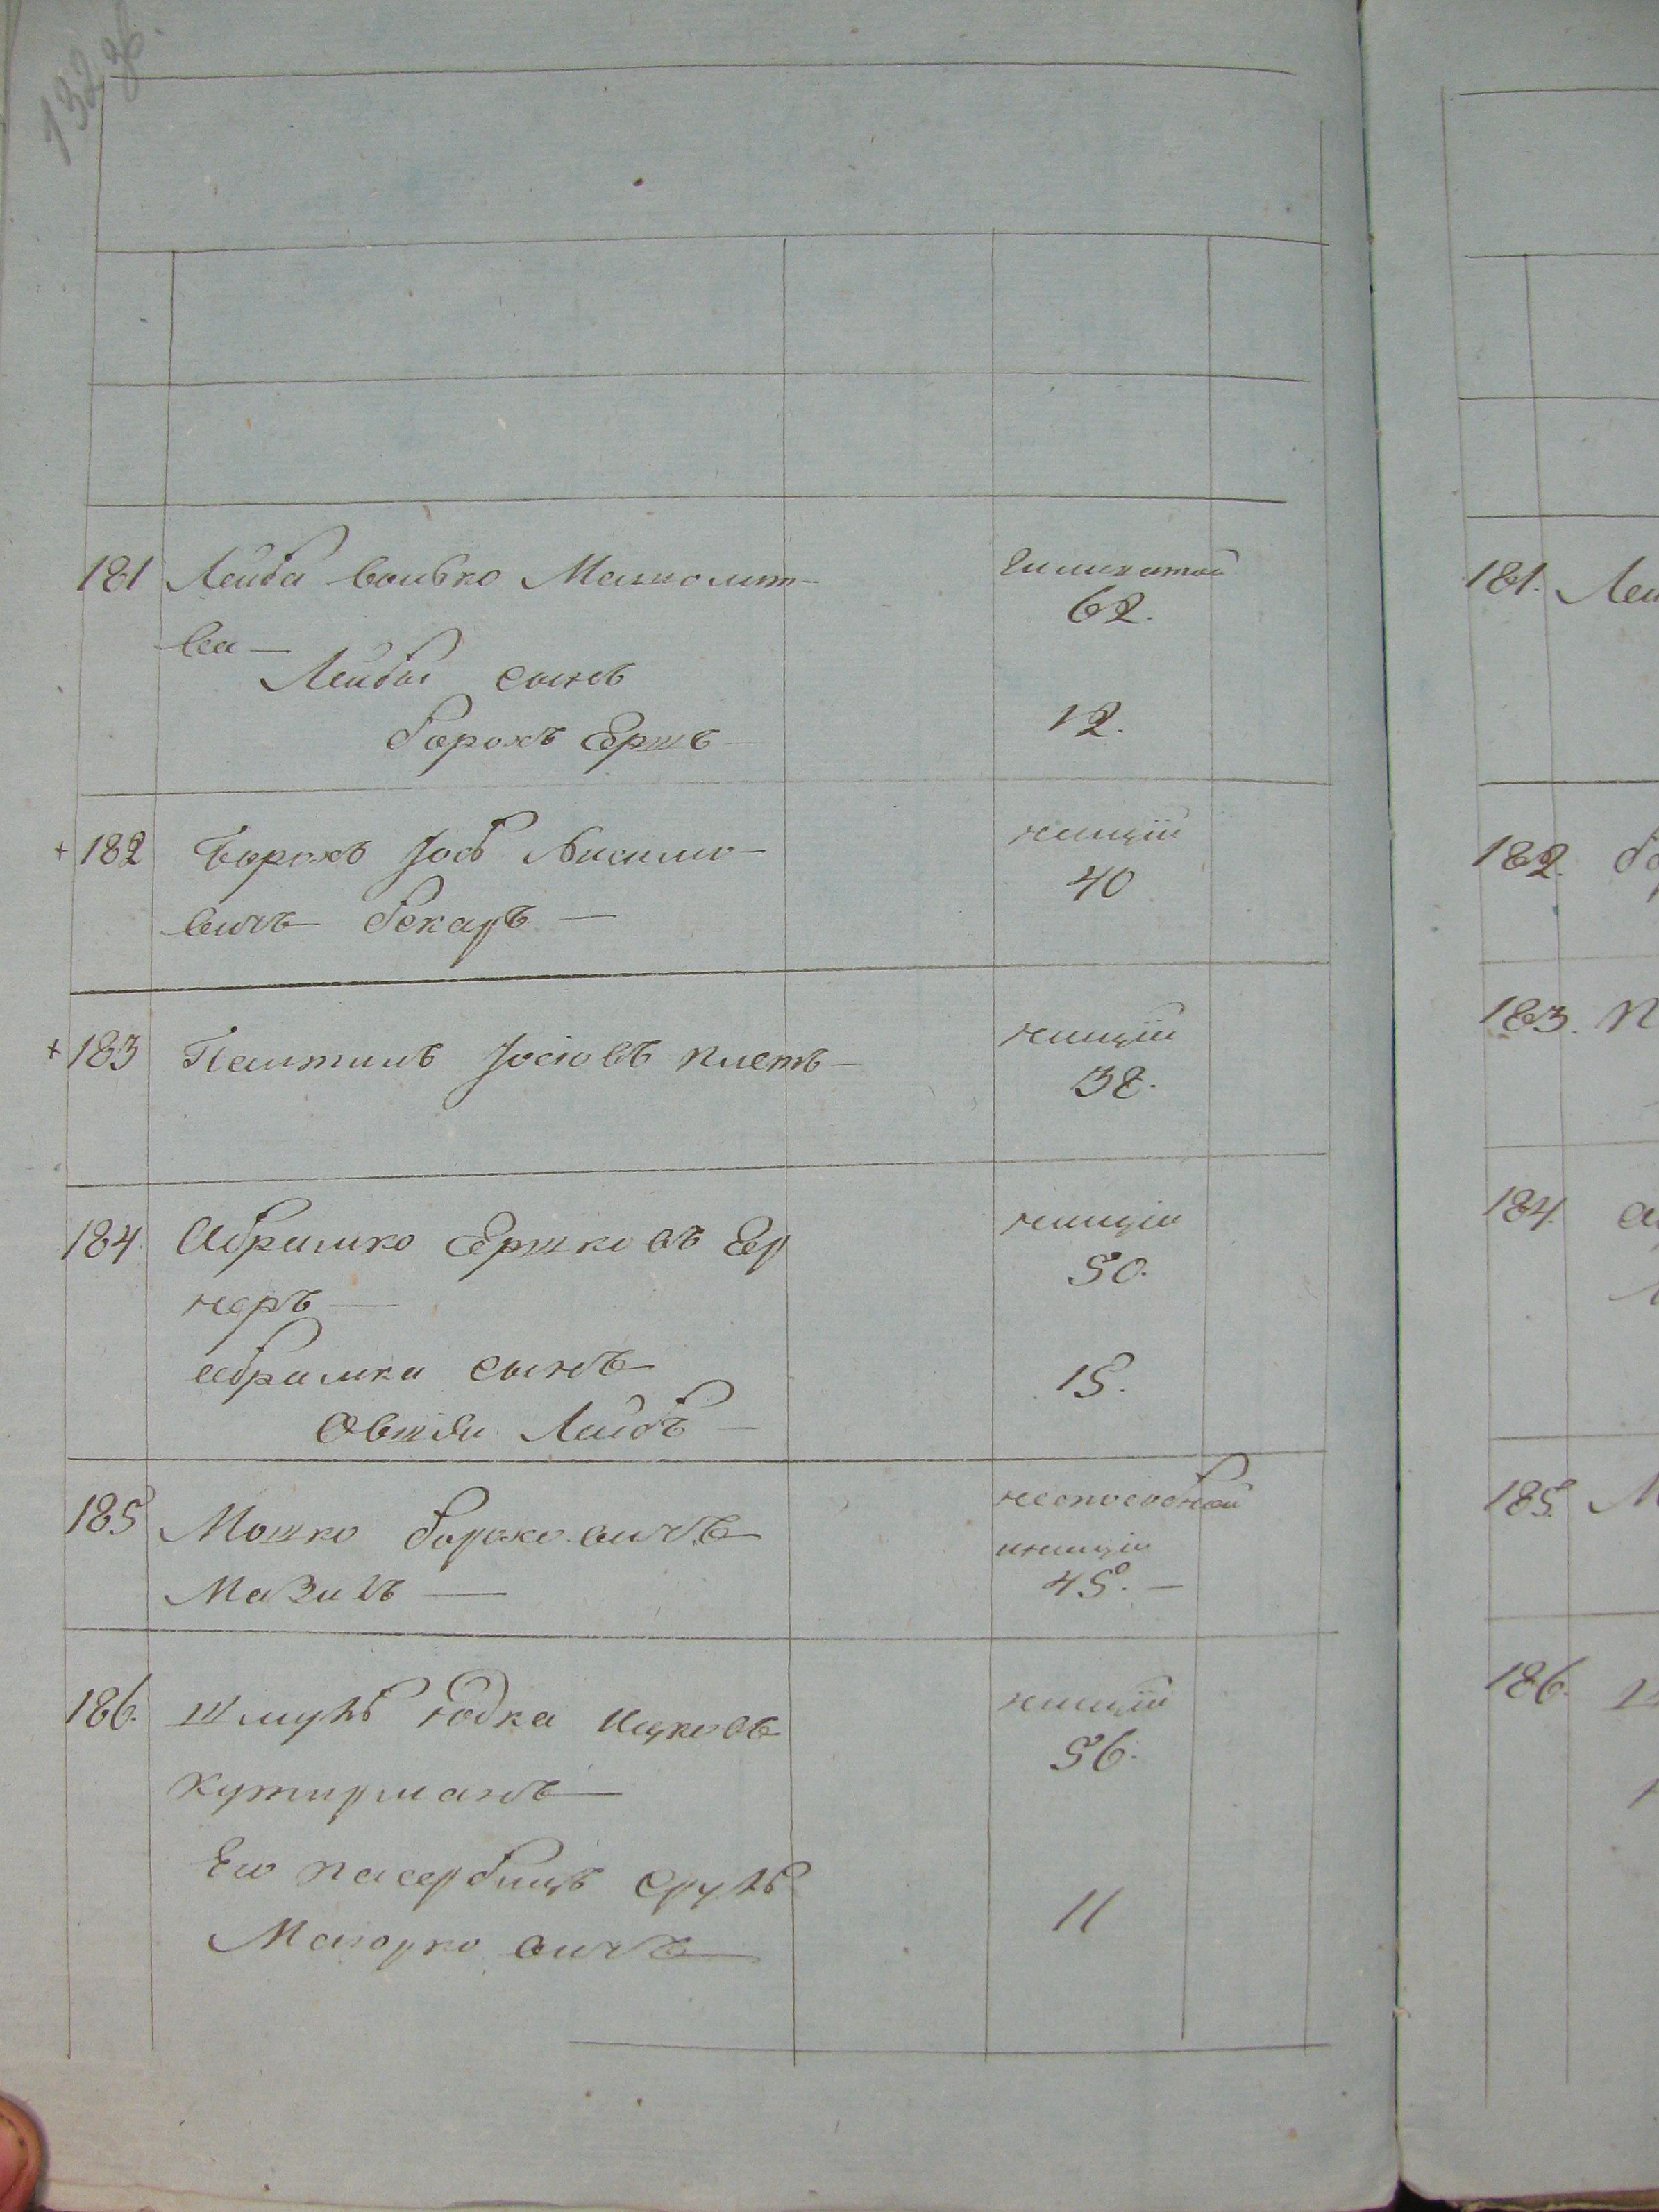 132 об.
181 Лейба Волько Мошколит-
ва —
Лейбы сынъ
Борохъ Ершъ —
62.
12.
+ 182 Борохъ Іось
вичъ Бекаръ —
нищій
40
+ 183 Іосіовъ
нищій
38.
184. Абрамко Ершковъ Ер
неръ —
Абрамка сынъ
Овшія Лейбъ —
нищій
50.
15.
185 Мошко Борховичъ
Мазилъ —
неспособной
и нищій
45. —
186. Шмулъ Юдка Ицковъ
Кутирманъ —
Его пасербицъ Срулъ
вичъ —
нищій
56.
11
181. Лей
182. Бо
183. П
184. А
185. М
186. Ш